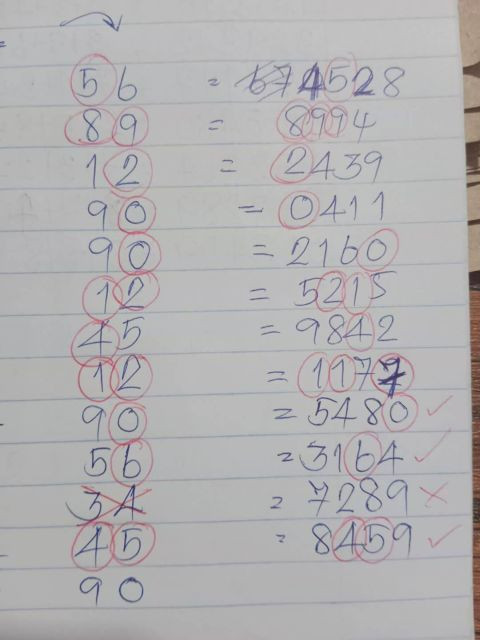 56 = 4528
89 = 8994
12 = 2439
90 = 0411
90 = 2160
12 = 5215
45 = 9842
12 = 1177
90 = 5480 ✓
56 = 3164 ✓
34 = 7289 ✗
45 = 8459 ✓
90